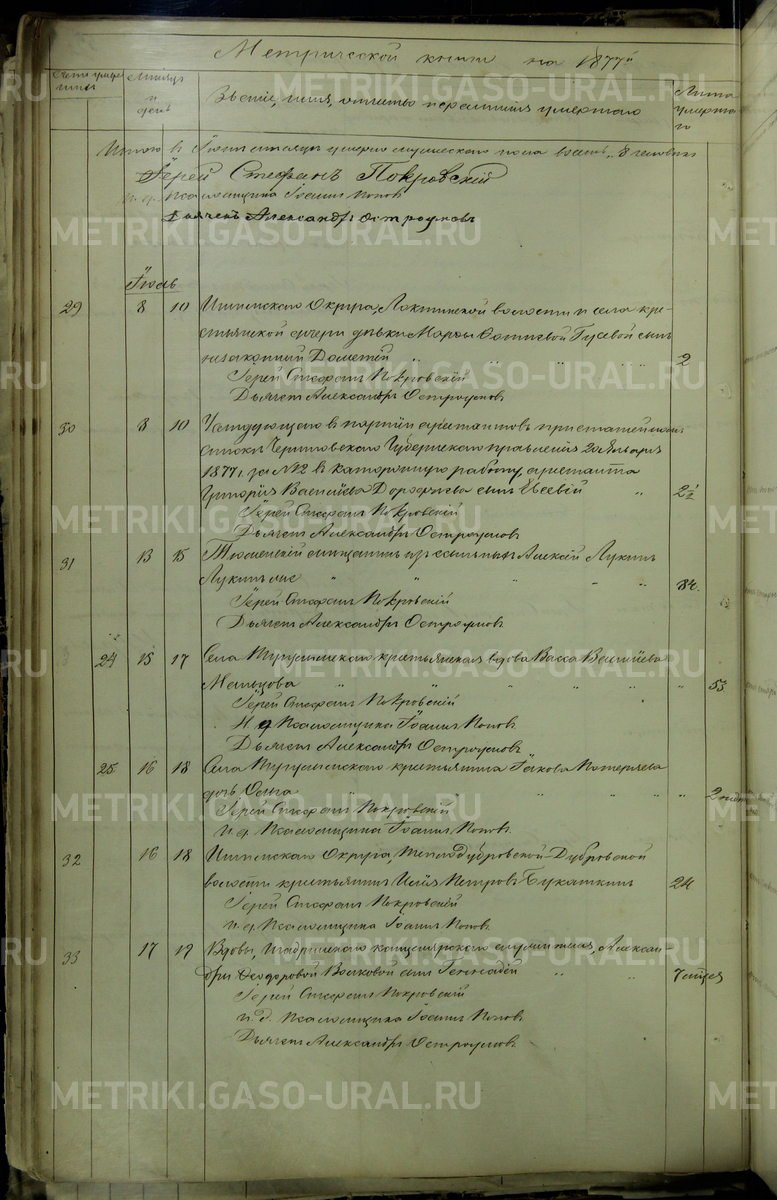 Метрической книги на 1877й
Счетъ умерш. Мѣсяцъ и день Званіе, имя, отчество и фамилія умершаго Лѣта умершаго
Итого въ Іюнѣ мѣсяцѣ умерло мужескаго пола восемь „8 человѣкъ
Іерей Стефанъ Покровскій
и. д. Псаломщика Іоаннъ Поповъ
Дьячекъ Александръ Остроумовъ
Іюль
29 8 10 Ишимскаго Округа, Локтинской волости и села кре-
стьянской дочери дѣвки Марѳы Гусевой сынъ
незаконный Дометій 2
Іерей Стефанъ Покровскій
Дьячекъ Александръ Остроумовъ
30 8 10 Слѣдующаго въ партіи арестантовъ при статейномъ
спискѣ Черниговскаго Губернскаго правленія 20 Января
1877 г. за № 2 въ каторжную работу, арестанта
Григорія Васильева Дорофѣева сынъ Евсевій 2½
Іерей Стефанъ Покровскій
Дьячекъ Александръ Остроумовъ
31 13 15 Тюменскій мѣщанинъ изъ ссыльныхъ Алексѣй Лукинъ
84.
Іерей Стефанъ Покровскій
Дьячекъ Александръ Остроумовъ
24 15 17 Села Тугулымскаго крестьянская вдова Васса
Мальцова 53
Іерей Стефанъ Покровскій
И. д. Псаломщика Іоаннъ Поповъ
Дьячекъ Александръ Остроумовъ
25 16 18 Села Тугулымскаго крестьянина Іакова Потеряева
дочь Ольга 2
Іерей Стефанъ Покровскій
и. д. Псаломщика Іоаннъ Поповъ
32 16 18 Ишимскаго Округа, Теплодубровской-Дубровской
волости крестьянинъ Илія Петровъ Букаткинъ 24
Іерей Стефанъ Покровскій
и. д. Псаломщика Іоаннъ Поповъ
33 17 19 Вдовы, канцелярскаго служителя, Алексан-
дры Ѳеодоровой Волковой сынъ Геннадій 7 мѣсяц.
Іерей Стефанъ Покровскій
и. д. Псаломщика Іоаннъ Поповъ
Дьячекъ Александръ Остроумовъ
METRIKI.GASO-URAL.RU